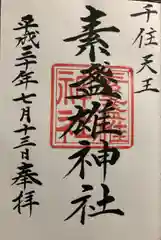 千住天王
素盞雄神社
平成二十年七月十三日奉拝